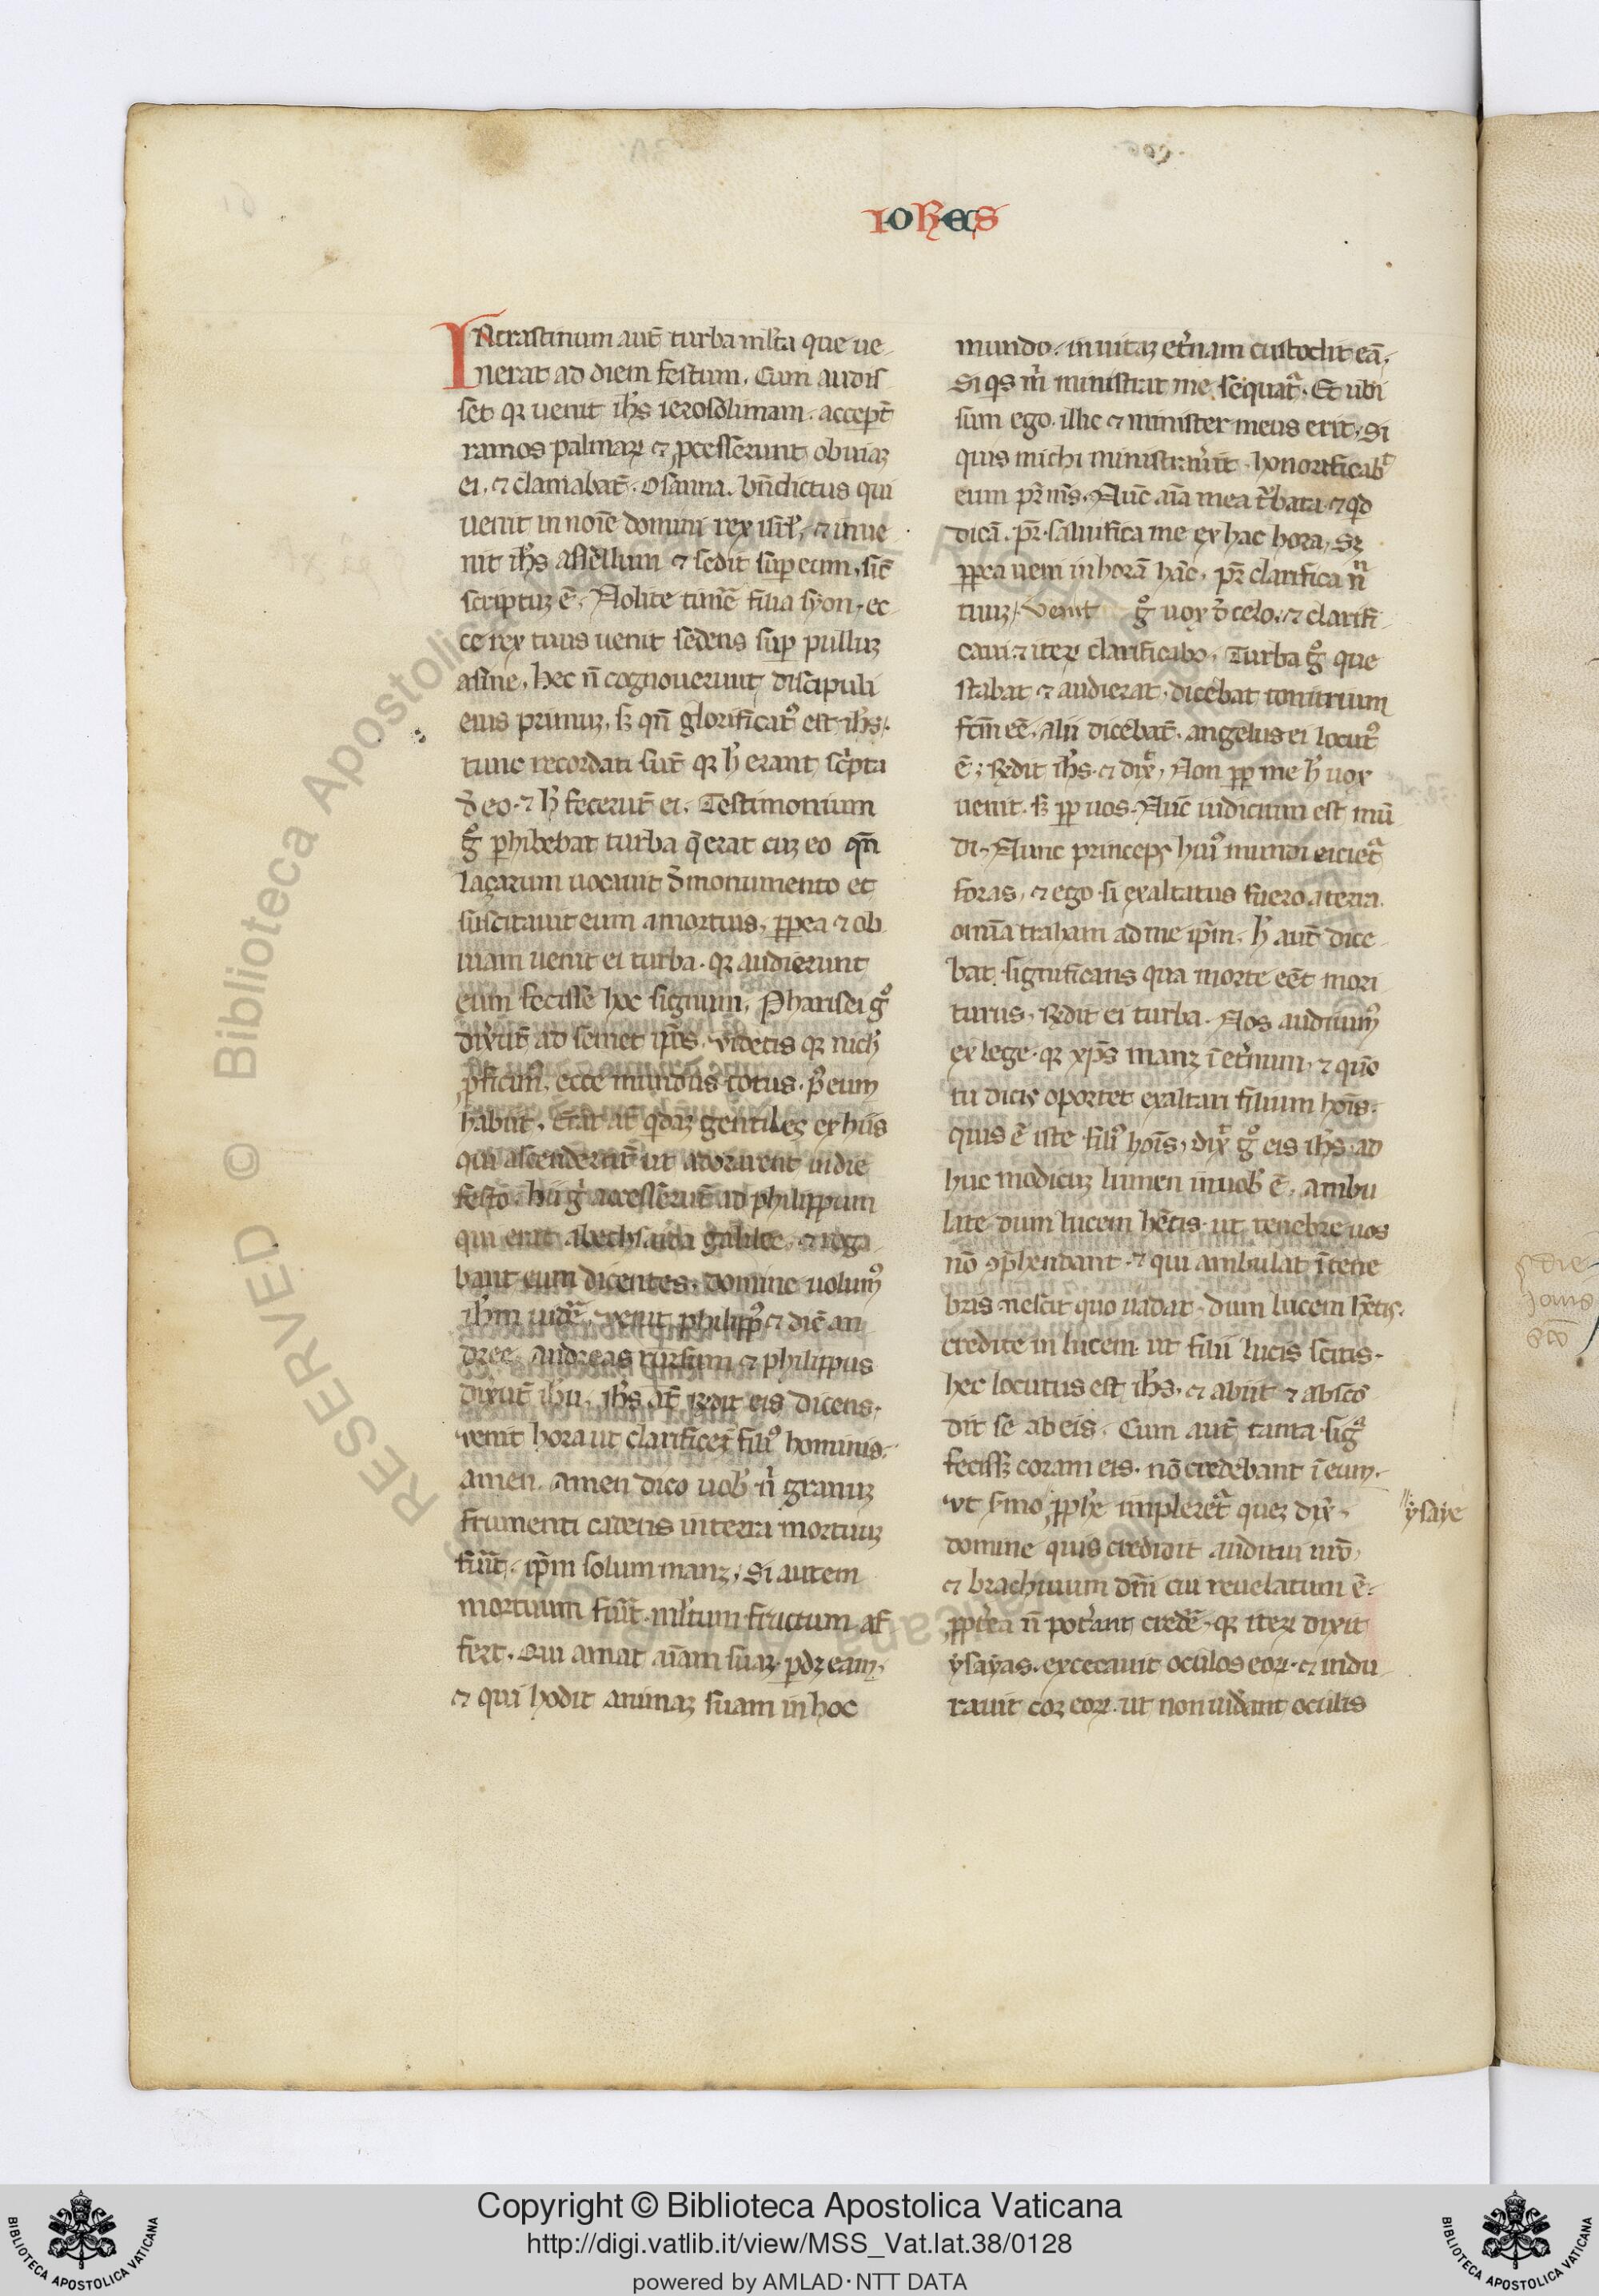 IOHES
IN crastinum aut̄ turba ml̄ta que ue
nerat ad diem festum. Cum audis
set qꝛ uenit ih̄s ierosolimam. accepṫ
ramos palmaꝝ ⁊ ꝓcesserunt obuiaꝫ
ei. ⁊ clamabāt. osanna. bn̄dictus qui
uenit in noīe domini rex isrl̄. ⁊ inue
nit ih̄s assellum ⁊ sedit suꝑ eum. sic̄
scriptuꝫ ē. Nolite timē filia syon. ec
ce rex tuus uenit sedens suꝑ pulluꝫ
asine. hec n̄ cognouerunt discipuli
eius primuꝫ. sꝫ qn̄ glorificatꝰ est ih̄s.
tunc recordati sūt qꝛ h̄ erant sc̓pta
d̄ eo. ⁊ h̄ fecerūt ei. Testimonium
gͦ ꝑhibebat turba q̄ erat cuꝫ eo qn̄
laçarum uocauit d̄ monumento et
suscitauit eum a mortuis. ꝓpea ⁊ ob
uiam uenit ei turba. qꝛ audierunt
eum fecisse hoc signum. Pharisei gͦ
dix̄ūt ad semet ip̄os. videtis qꝛ nich̄
ꝓficim̄. ecce mundus totus. p̄ eum
habiit. Erāt at̄ qͥdaꝫ gentiles ex hiis
qui ascenderāt ut adorarent in die
festo. hii gͦ accesserūt ad philippum
qui erat a bethsaida galilee. ⁊ roga
bant eum dicentes. domine uolumꝰ
ih̄m uidē. venit philippꝰ ⁊ dic̄ an
dree. Andreas rursum ⁊ philippus
dix̄ūt ih̄u. ih̄s at̄ r̄dit eis dicens.
venit hora ut clarificet̄ filiꝰ hominis.
amen. amen dico uob̄ n̓ granuꝫ
frumenti cadens in terra mortuuꝫ
fūit. ip̄m solum manꝫ. Si autem
mortuum fūit. ml̄tum fructum af
fert. Qui amat aīam suaꝫ. ꝑdꝫ eam.
⁊ qui hodit animaꝫ suam in hoc
mundo. in uitaꝫ et̓nam custodit eā.
Si qͥs m̓ ministrat me sequat̄. Et ubi
sum ego. illic ⁊ minister meus erit. Si
quis michi ministrau̓it. honorificab̄
eum pr̄ m̄s. Nūc aīa mea t̓bata. ⁊ qͥd
dicā. pr̄. saluifica me ex hac hora. Sꝫ
ꝓpea ueni in horā hāc. pr̄ clarifica n̄
tuuꝫ. Venit gͦ uox d̄ celo. ⁊ clarifi
caui. ⁊ iteꝝ clarificabo. Turba gͦ que
stabat ⁊ audierat. dicebat tonitruum
fc̄m eē. alii dicebāt. angelus ei locutꝰ
ē. R̄dit ih̄s. ⁊ dix̄. Non ꝓp me h̄ uox
uenit. sꝫ ꝓp uos. Nūc iudicium est mū
di. Nunc princeps huiꝰ mundi eiciet̄
foras. ⁊ ego si exaltatus fuero a terra.
omīa traham ad me ip̄m. h̄ aut̄ dice
bat. significans qua morte eēt mori
turus. R̄dit ei turba. Nos audiuimꝰ
ex lege. qꝛ xp̄s manꝫ ī et̓num. ⁊ quō
tu dicis oportet exaltari filium hoīs.
quis ē iste filiꝰ hoīs. dix̄ gͦ eis ih̄s. ad
huc modicuꝫ lumen in uob̄ ē. ambu
late dum lucem hētis. ut tenebre uos
nō ꝯp̄hendant. ⁊ qui ambulat ī tene
bris nescit quo uadat. dum lucem hētis.
credite in lucem. ut filii lucis scitis.
hec locutus est ih̄s. ⁊ abiit ⁊ absco
dit se ab eis. Cum aut̄ tanta sigͣ
fecissꝫ coram eis. nō credebant ī eum.
vt smo ꝓphe impleret̄ queꝫ dix̄.
ysaye
domine quis credidit auditui nr̄o.
⁊ brachium dn̄i cui reuelatum ē.
ꝓpt̓ea n̄ pot̓ant credē. qꝛ iteꝝ dixit
ysayas. excecauit oculos eoꝝ. ⁊ indu
rauit coꝛ eoꝝ. ut non uid̓ant oculis
RESERVED © Biblioteca Apostolica Vaticana
Copyright © Biblioteca Apostolica Vaticana
http://digi.vatlib.it/view/MSS_Vat.lat.38/0128
powered by AMLAD·NTT DATA
BIBLIOTECA APOSTOLICA VATICANA
BIBLIOTECA APOSTOLICA VATICANA